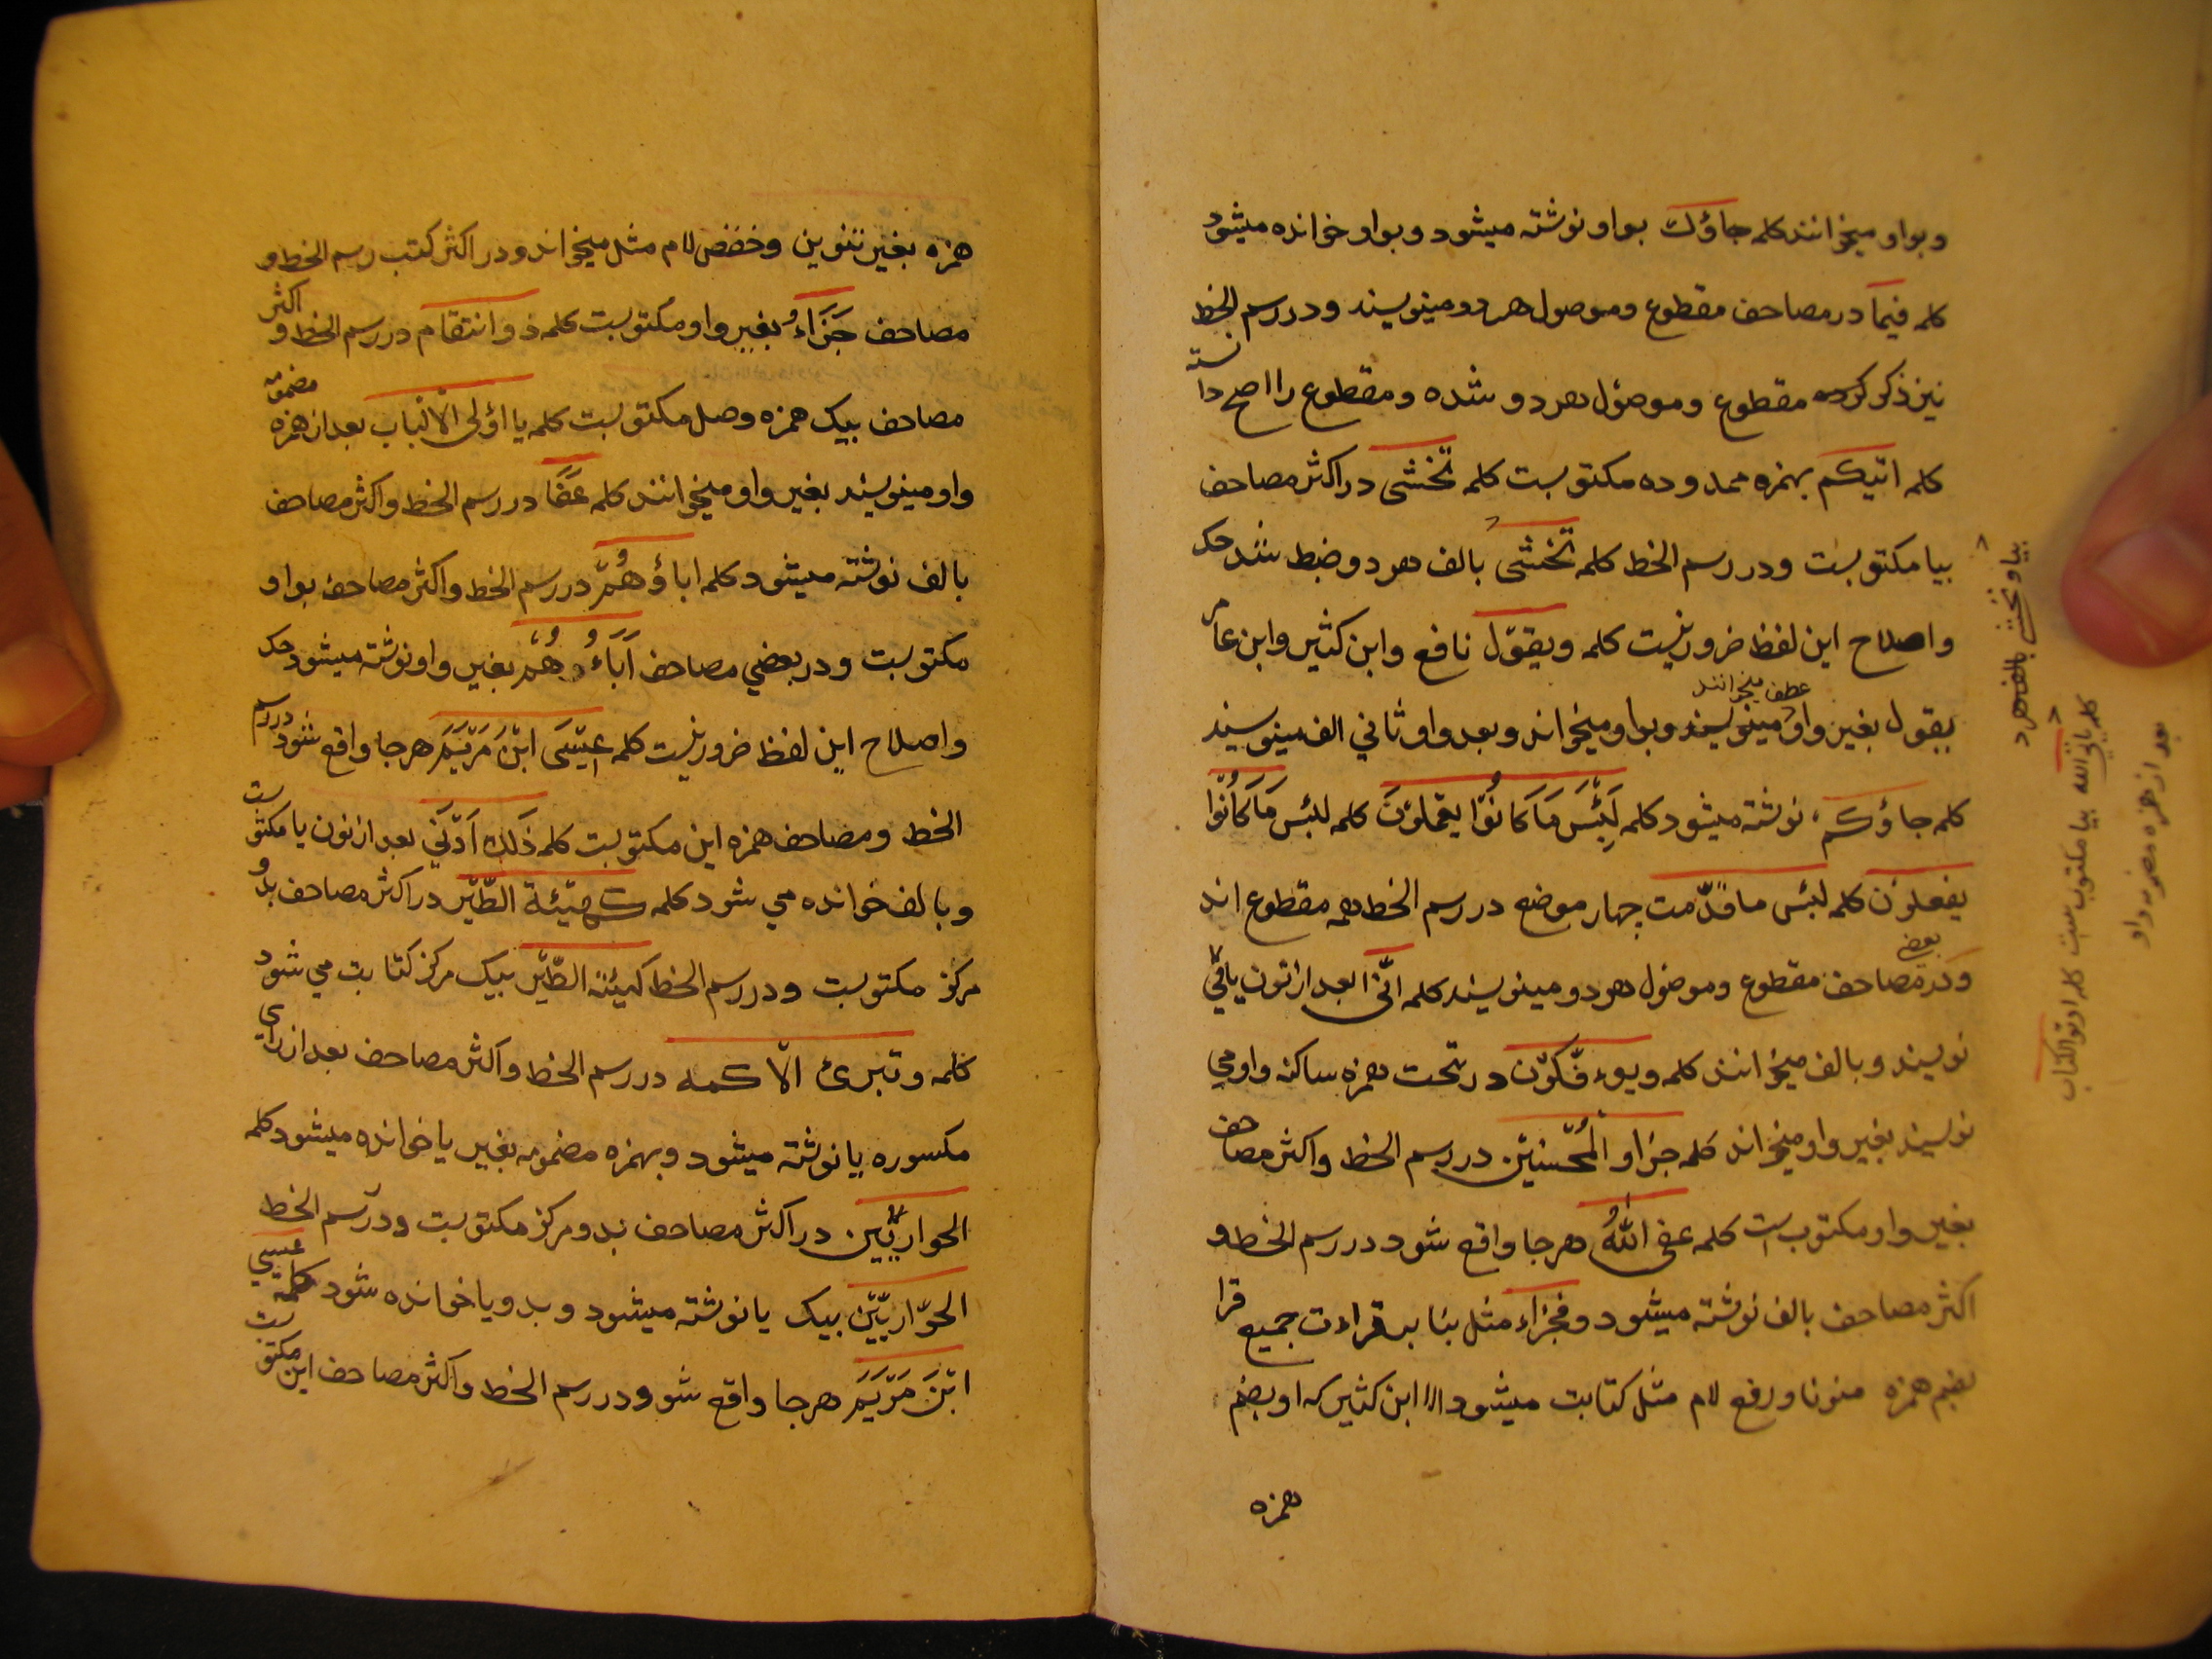 و بواو میخوانند کلمه جاؤك بواو نوشته میشود و بواو خوانده میشود
کلمه فیما در مصاحف مقطوع و موصول هر دو مینویسند و در رسم الخط
نیز ذکر کرده مقطوع و موصول هر دو شده و مقطوع را اصح دانسته
کلمه اتیکم بهمزه ممدوده مکتوبست کلمه نخشی در اکثر مصاحف
بیا مکتوبست و در رسم الخط کلمه نخشی بالف هر دو ضبط شد حک
و اصلاح این لفظ ضروریست کلمه ویقول نافع وابن کثیر وابن عامر
یقول بغیر واو عطف میخوانند مینویسند وبواو میخواند و بعد واو ثانی الف مینویسند
کلمه جاؤکم نوشته میشود کلمه لَبِئْسَ مَا كَانُوْا يعملون کلمه لبئس مَا كَانُوْا
یفعلون کلمه لبئس ما قدّمت چهار موضع در رسم الخط همه مقطوع اند
و در بعضی مصاحف مقطوع وموصول هر دو مینویسند کلمه انّی بعد از نون یا
نویسند و بالف میخوانند کلمه ویوءفکون در تحت همزه ساکنه واو می
نویسند بغیر واو میخواند کلمه جزاو المُحْسنین در رسم الخط و اکثر مصاحف
بغیر واو مکتوب است کلمه عفی اللهُ هر جا واقع شود در رسم الخط و
اکثر مصاحف بالف نوشته میشود و فجزاء مثل بنا بر قراءت جمیع قرا
بضم همزه منونا و رفع لام مثل کتابت میشود الا ابن کثیر که او بضم
همزه
بیا و نخشی بالف هر د
کلمه یاتی الله بیا مکتوب ست کلمه اوتوا الکتاب
بعد از همزه مضمومه واو
همزه بغیر تنوین و خفض لام مثل میخواند و در اکثر کتب رسم الخط و
اکثر مصاحف جَزَاءُ بغیر واو مکتوبست کلمه ذو انتقام در رسم الخط و
مصاحف بیک همزه وصل مکتوبست کلمه یا اولی الالباب بعد از همزه مضمومه
واو مینویسند بغیر واو میخوانند کلمه عَفَا در رسم الخط و اکثر مصاحف
بالف نوشته میشود کلمه اباؤهُمْ در رسم الخط و اکثر مصاحف بواو
مکتوبست و در بعضی مصاحف اَبَاءُ هُمْ بغیر واو نوشته میشود حک
و اصلاح این لفظ ضروریست کلمه عِیْسَی ابْنُ مَرْیَمَ هر جا واقع شود در رسم
الخط و مصاحف همزه ابن مکتوبست کلمه ذَلِكَ اَدْنَی بعد از نون یا مکتوبست
و بالف خوانده می شود کلمه کهیئة الطّیر در اکثر مصاحف بدو
مرکز مکتوبست و در رسم الخط کهیئة الطّیر بیک مرکز کتابت می شود
کلمه و تبرئ الاکمه در رسم الخط و اکثر مصاحف بعد از رای
مکسوره یا نوشته میشود و بهمزه مضمومه بغیر یا خوانده میشود کلمه
الحواریّین در اکثر مصاحف بدو مرکز مکتوبست و در رسم الخط
الحوّاریّین بیک یا نوشته میشود و بدو یا خوانده شود کلمه عیسی
ابْنَ مَرْیَمَ هر جا واقع شود در رسم الخط و اکثر مصاحف ابن مکتوبست